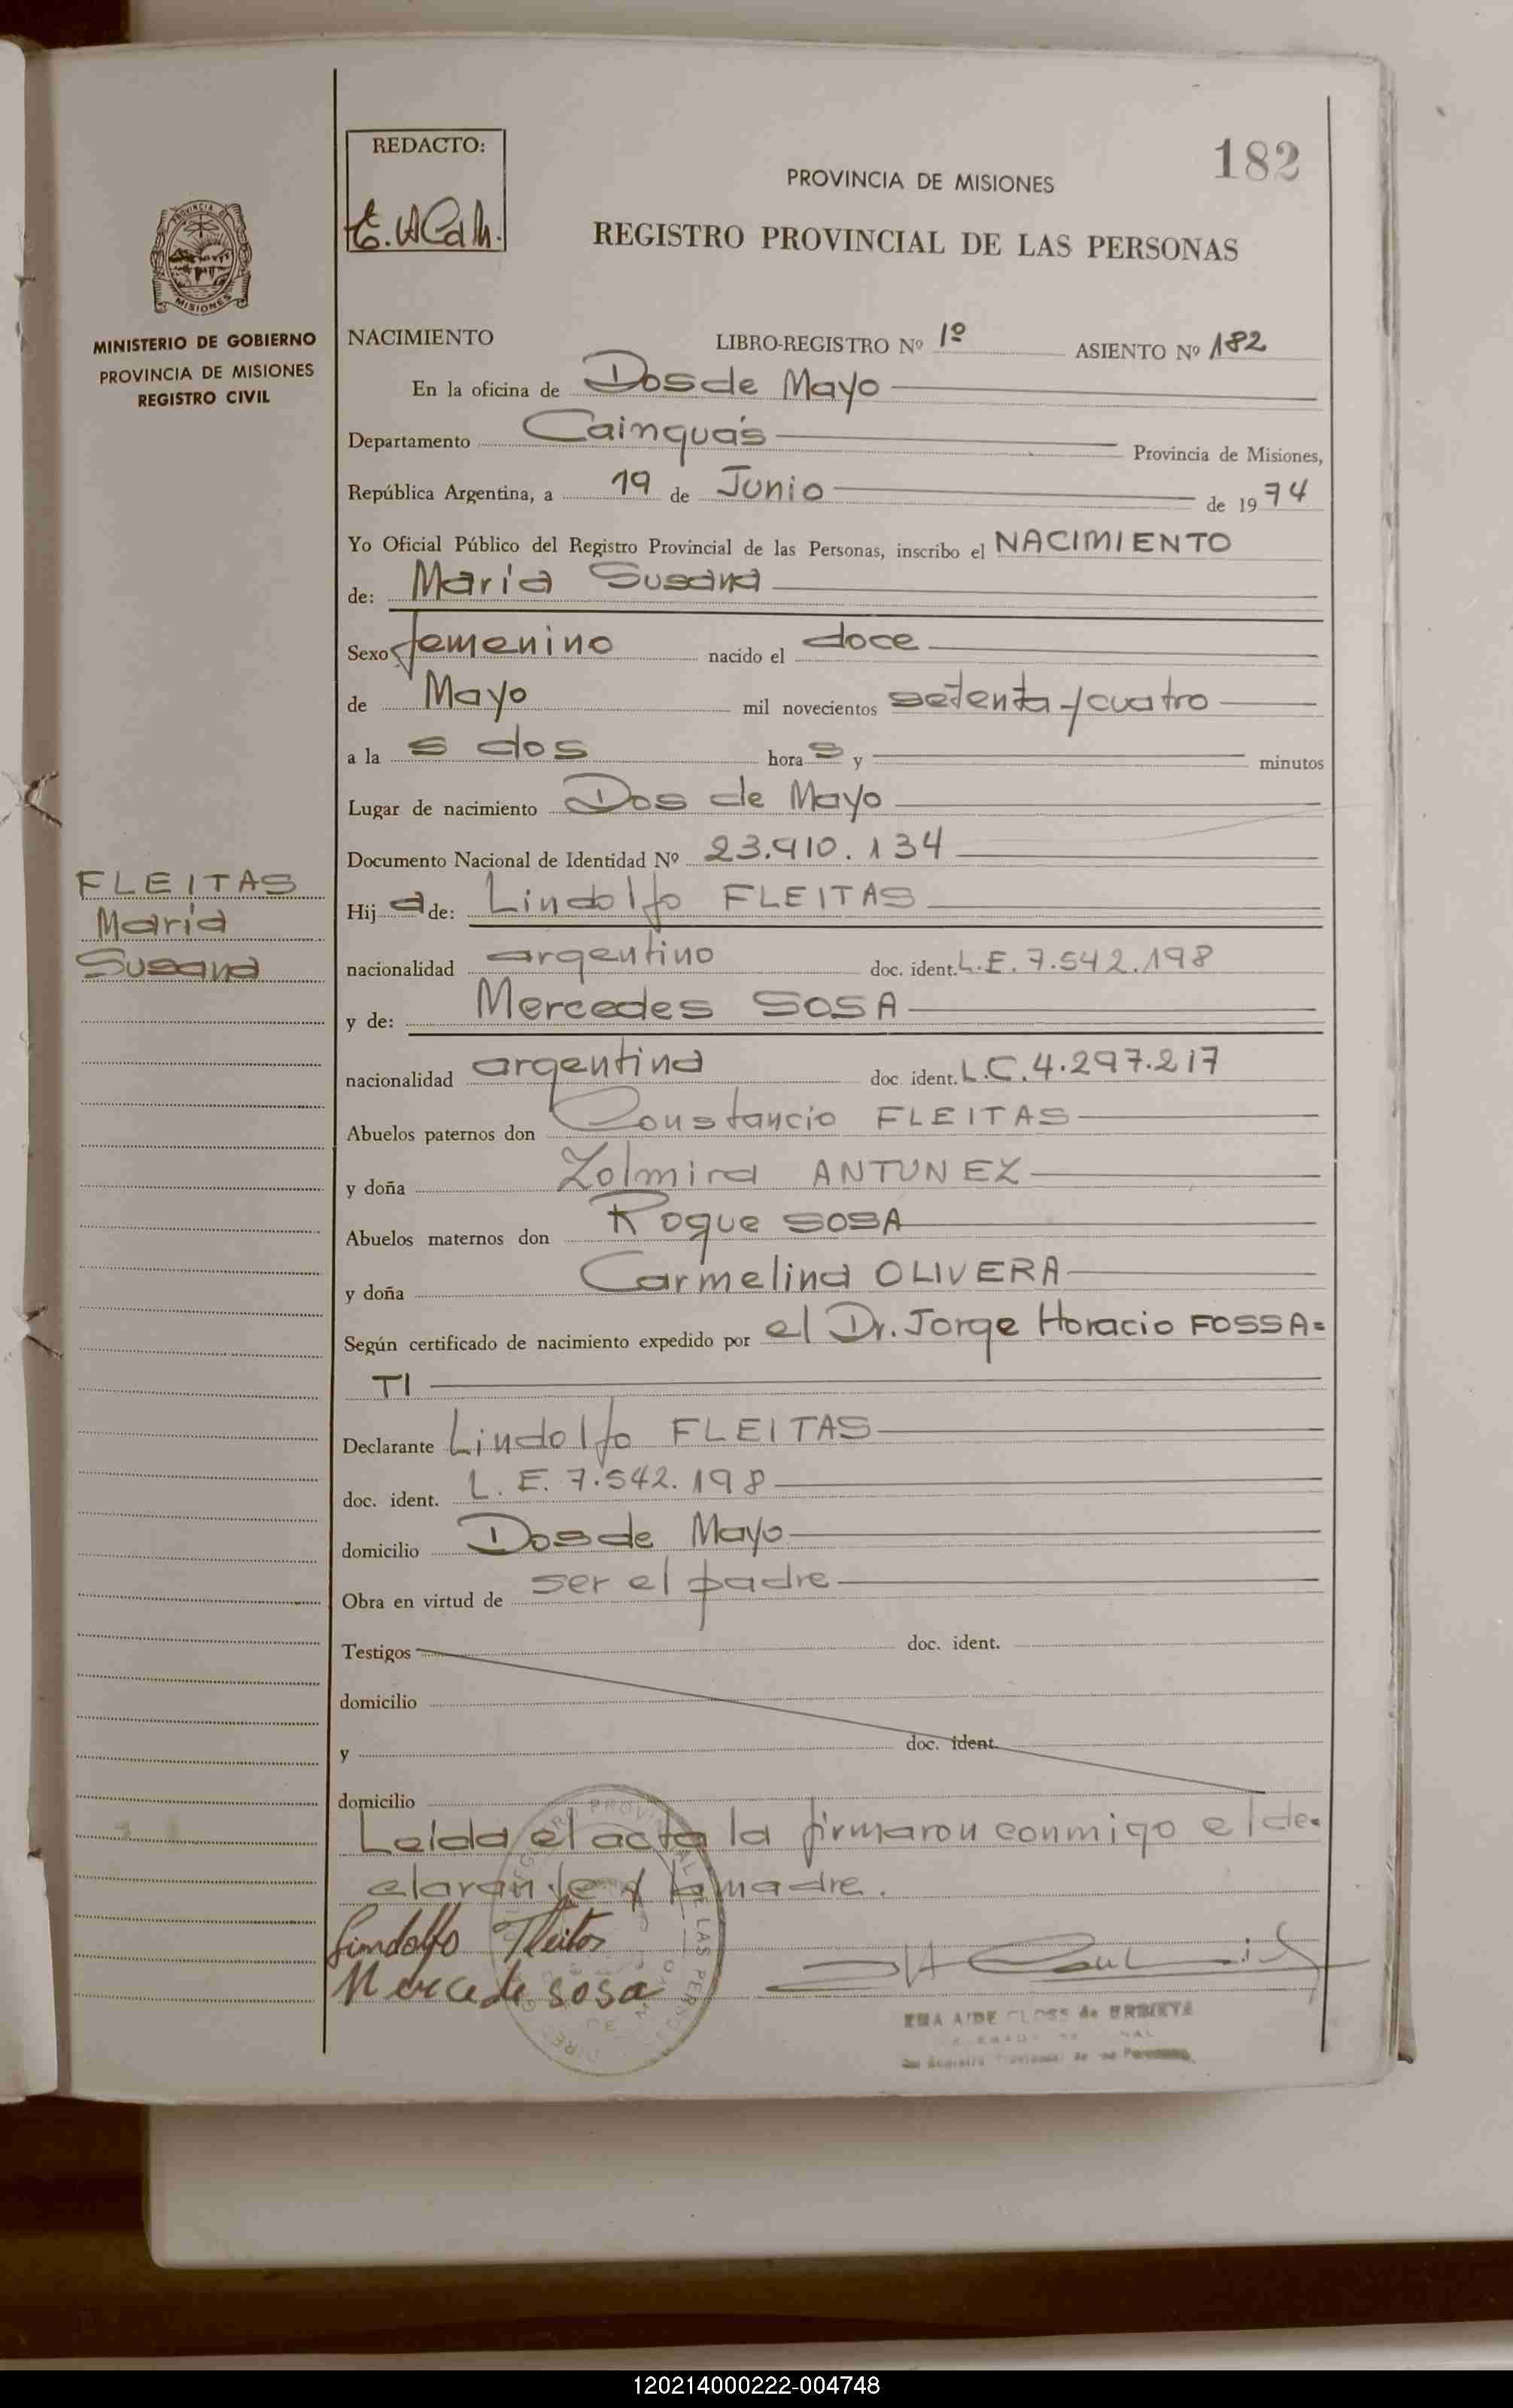 182
REDACTO:
PROVINCIA DE MISIONES
REGISTRO PROVINCIAL DE LAS PERSONAS
MISIONES
MINISTERIO DE GOBIERNO
PROVINCIA DE MISIONES
REGISTRO CIVIL
NACIMIENTO LIBRO-REGISTRO Nº 1º ASIENTO Nº 182
En la oficina de Dos de Mayo
Departamento Cainguás Provincia de Misiones,
República Argentina, a 19 de Junio de 1974
Yo Oficial Público del Registro Provincial de las Personas, inscribo el NACIMIENTO
de: María Susana
Sexo femenino nacido el doce
de Mayo mil novecientos setenta y cuatro
a la s dos hora s y minutos
Lugar de nacimiento Dos de Mayo
Documento Nacional de Identidad Nº 23.910.134
FLEITAS
María
Susana
Hij a de: Lindolfo FLEITAS
nacionalidad argentino doc. ident. L.E. 7.542.198
y de: Mercedes SOSA
nacionalidad argentina doc. ident. L.C. 4.297.217
Abuelos paternos don Constancio FLEITAS
y doña Zolmira ANTUNEZ
Abuelos maternos don Roque SOSA
y doña Carmelina OLIVERA
Según certificado de nacimiento expedido por el Dr. Jorge Horacio FOSSA=
TI
Declarante Lindolfo FLEITAS
doc. ident. L.E. 7.542.198
domicilio Dos de Mayo
Obra en virtud de ser el padre
Testigos doc. ident.
domicilio
y doc. ident.
domicilio
Leída el acta la firmaron conmigo el de=
clarante y la madre.
Lindolfo Fleitas
Mercede sosa
120214000222-004748